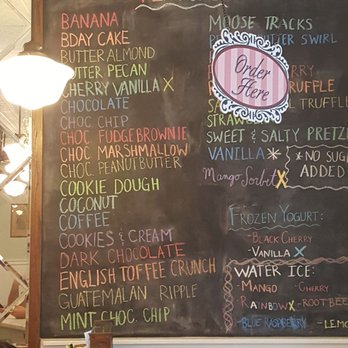 BANANA
BDAY CAKE
BUTTER ALMOND
BUTTER PECAN
CHERRY VANILLA X
CHOCOLATE
CHOC CHIP
CHOC FUDGE BROWNIE
CHOC MARSHMALLOW
CHOC. PEANUT BUTTER
COOKIE DOUGH
COCONUT
COFFEE
COOKIES & CREAM
DARK CHOCOLATE
ENGLISH TOFFEE CRUNCH
GUATEMALAN RIPPLE
MINT CHOC. CHIP
MOOSE TRACKS
SWIRL
Order
Here
TRUFFLE
TRUFFLE
SWEET & SALTY PRETZE
VANILLA *
* NO SUG
ADDED
Mango Sorbet X
FROZEN YOGURT:
- BLACK CHERRY
- VANILLA X
WATER ICE:
- MANGO - CHERRY
- RAINBOW X - ROOT BEE
- BLUE RASPBERRY - LEMO